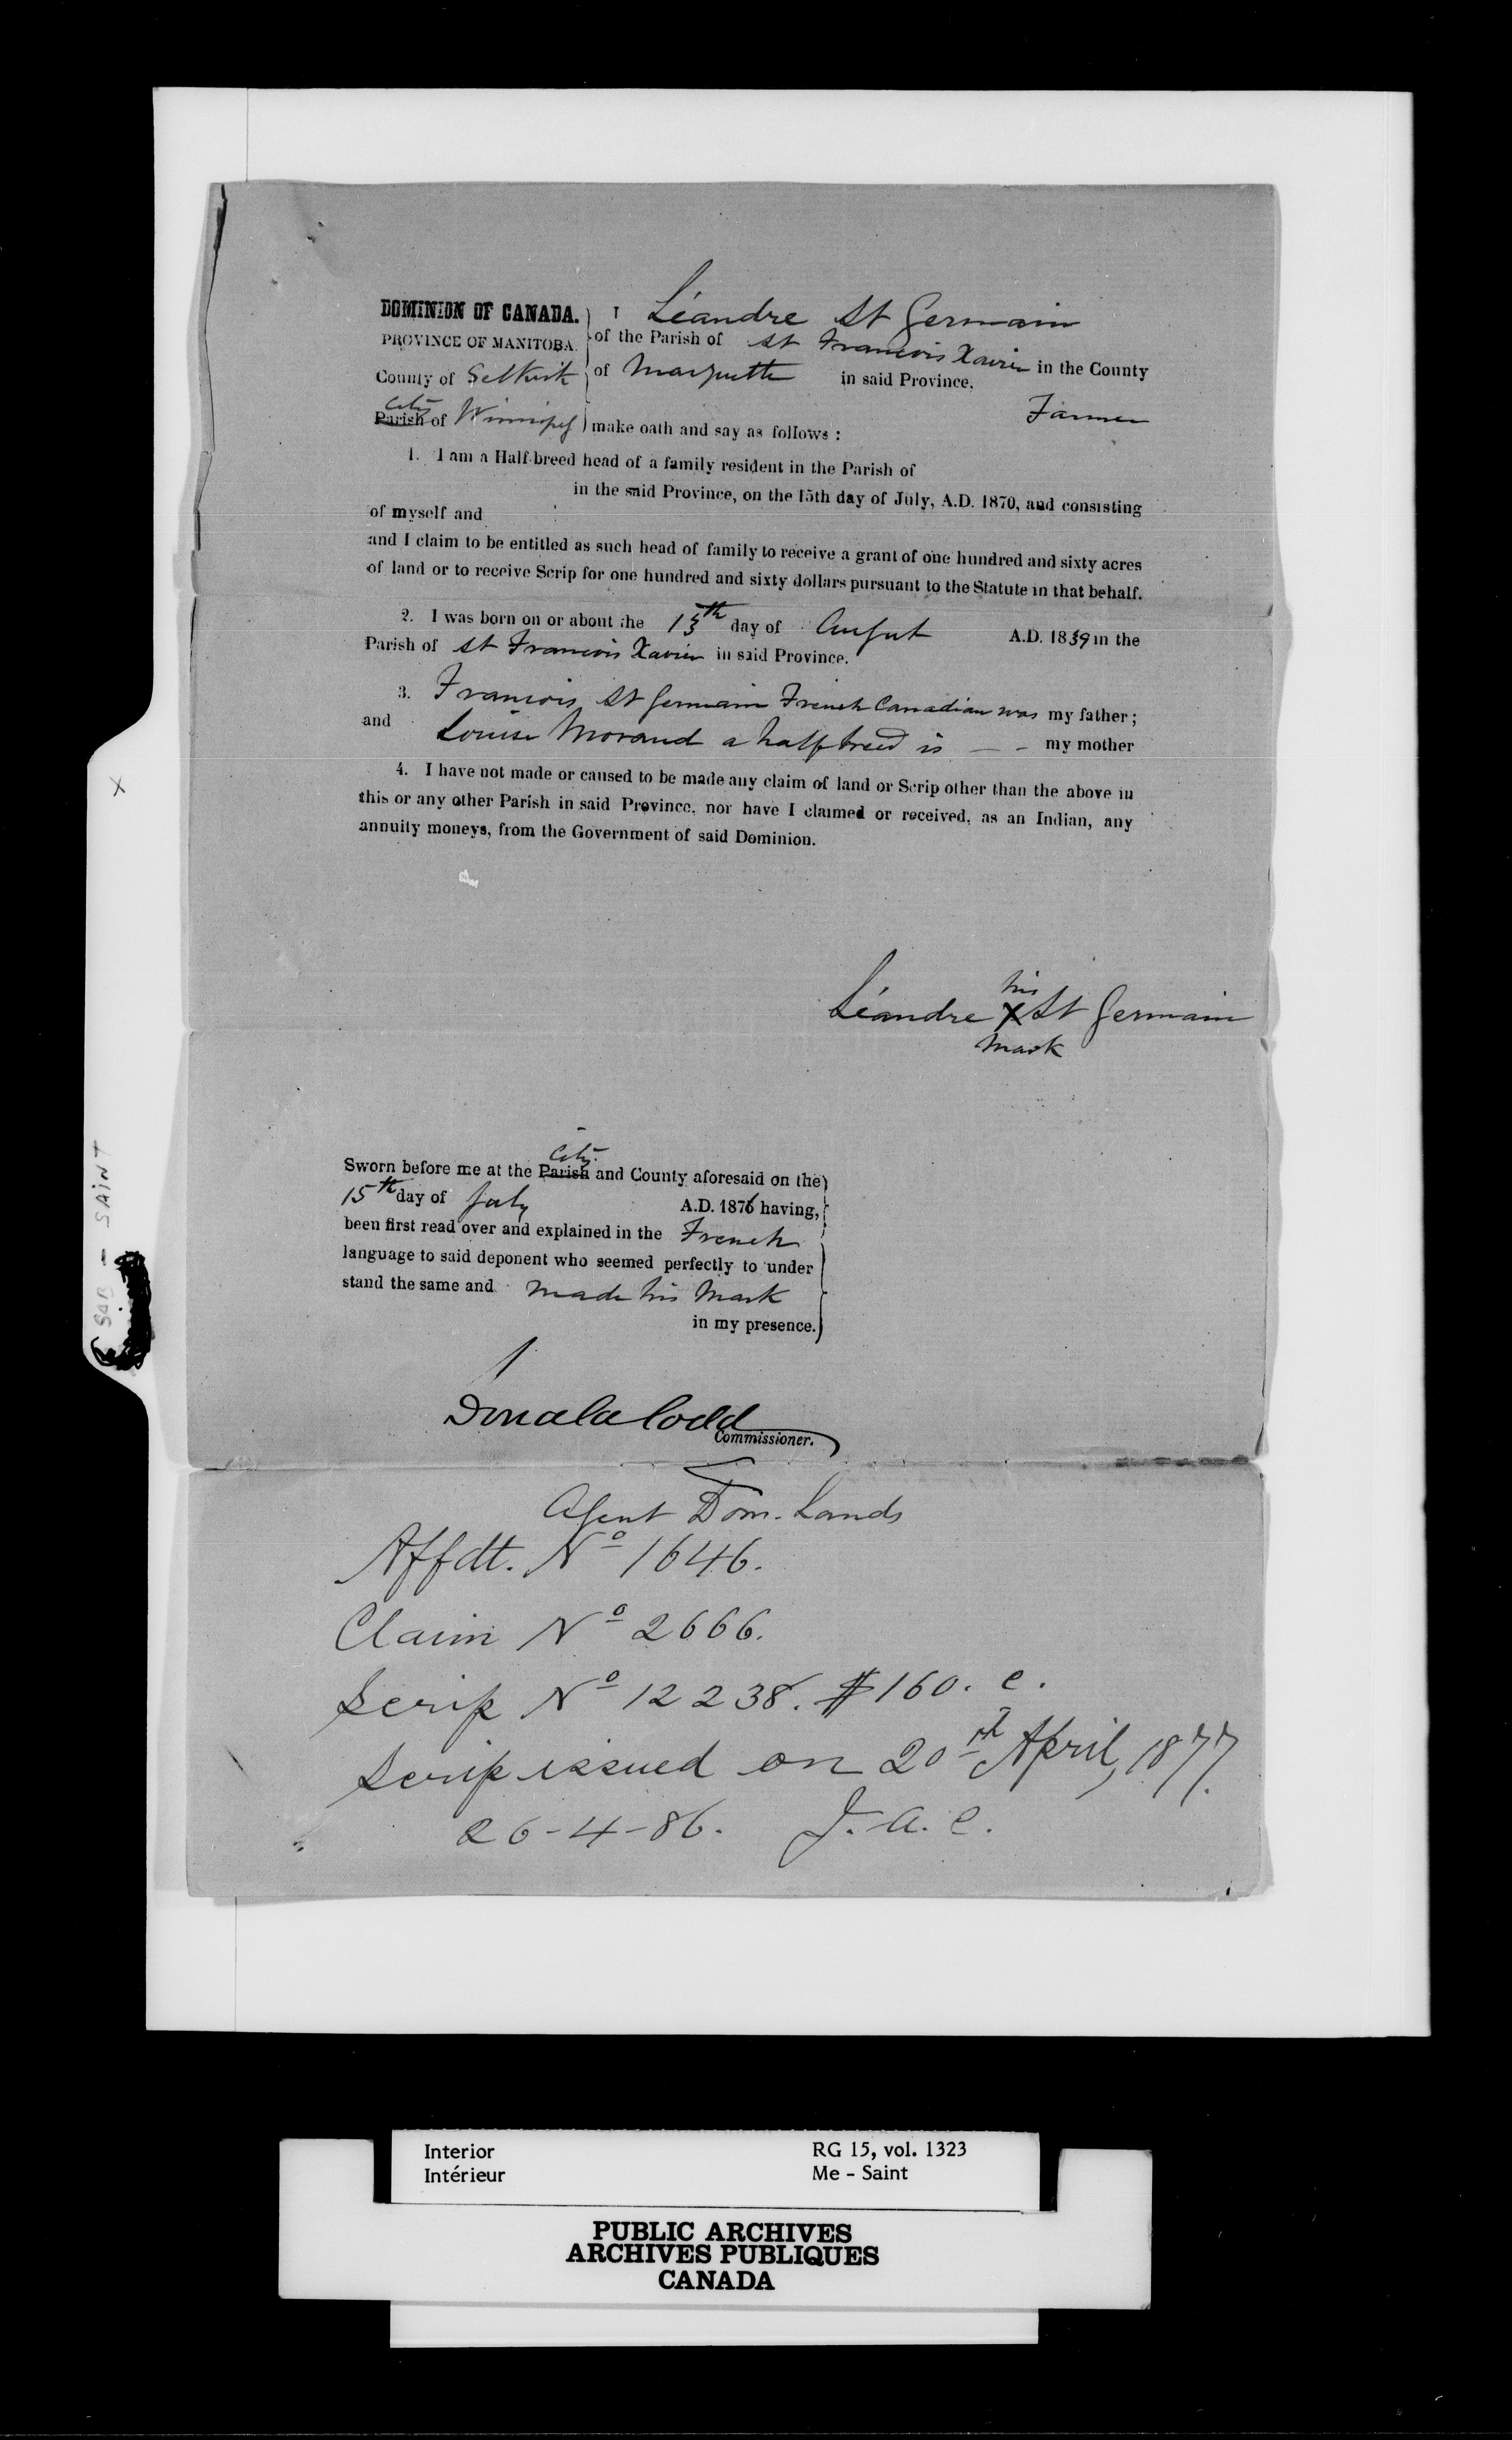 DOMINION OF CANADA.
PROVINCE OF MANITOBA.
County of Selkirk
City
Parish of Winnipeg
I Léandre St Germain
of the Parish of St Francois Xavier in the County
of Marquette in said Province,
Farmer
make oath and say as follows:
1. I am a Half-breed head of a family resident in the Parish of
in the said Province, on the 15th day of July, A.D. 1870, and consisting
of myself and
and I claim to be entitled as such head of family to receive a grant of one hundred and sixty acres
of land or to receive Scrip for one hundred and sixty dollars pursuant to the Statute in that behalf.
2. I was born on or about the day of August A.D. 1839 in the
Parish of St Francois Xavier in said Province.
3. Francois St Germain French Canadian was my father;
and Louise Morand a half breed is — - my mother
4. I have not made or caused to be made any claim of land or Scrip other than the above in
this or any other Parish in said Province, nor have I claimed or received, as an Indian, any
annuity moneys, from the Government of said Dominion.
his
Léandre X St Germain
Mark
City
Sworn before me at the Parish and County aforesaid on the
15th day of July A.D. 1876 having,
been first read over and explained in the French
language to said deponent who seemed perfectly to under
stand the same and made his Mark
in my presence.
Donald Codd
Commissioner.
Agent Dom. Lands
Affdt. No 1646.
Claim No 2666.
Scrip No 12238. $160. c.
Scrip issued on 20th April, 1877.
26-4-86. J. A. C.
X
SAB - SAINT
Interior RG 15, vol. 1323
Intérieur Me - Saint
PUBLIC ARCHIVES
ARCHIVES PUBLIQUES
CANADA